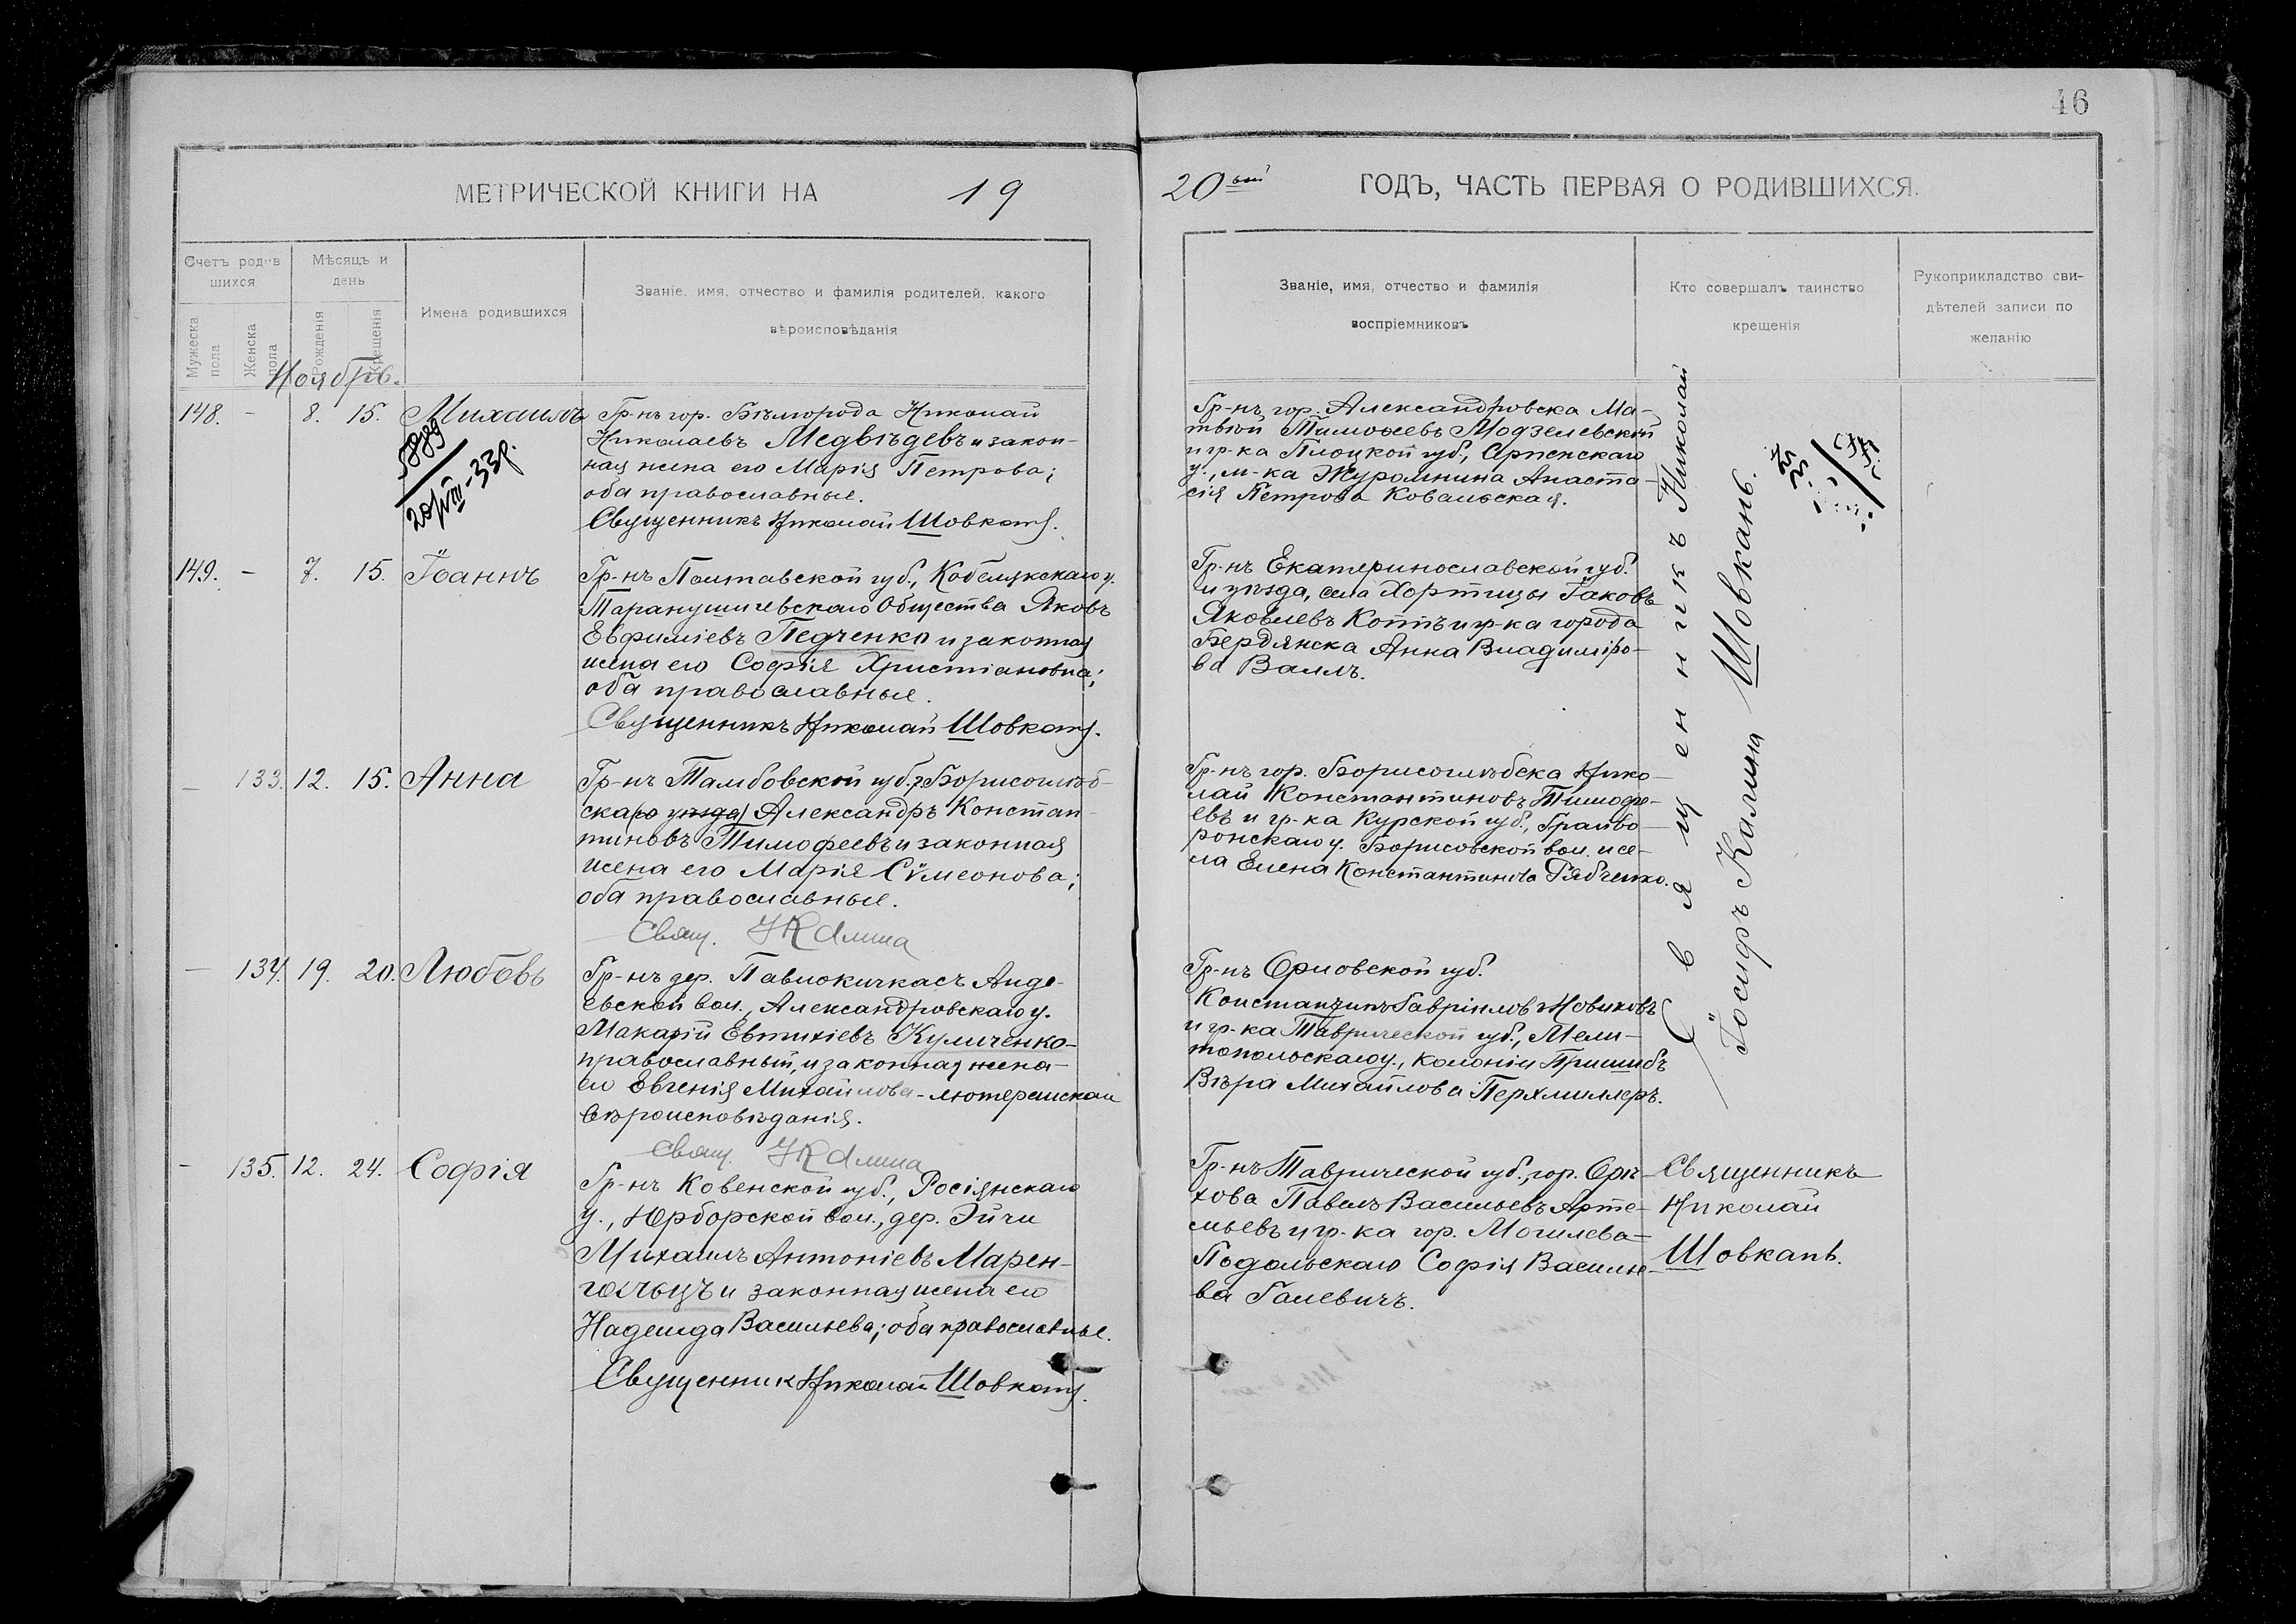 46
МЕТРИЧЕСКОЙ КНИГИ НА 19
20ый ГОДЪ, ЧАСТЬ ПЕРВАЯ О РОДИВШИХСЯ.
Счетъ родив
шихся
Мужеска
пола
Женска
пола
Мѣсяцъ и
день
Рожденія
Крещенія
Имена родившихся
Званіе, имя, отчество и фамилія родителей, какого
вѣроисповѣданія
Званіе, имя, отчество и фамилія
воспріемниковъ
Кто совершалъ таинство
крещенія
Рукоприкладство сви-
дѣтелей записи по
желанію
Ноябрь.
148. - 8. 15. Михаилъ
5889
20/VIII-33р.
Гр-нъ гор. Бѣлгорода Николай
Николаевъ Медвѣдевъ и закон-
ная жена его Марія Петрова;
оба православные.
Священникъ Николай Шовкань.
Гр-нъ гор. Александровска Ма-
твѣй Тимоѳеевъ Модзелевскій
и гр-ка Плоцкой губ.,
у., м-ка Журомнина Анаста-
сія Петрова Ковальская.
149. - 7. 15. Іоаннъ
Гр-нъ Полтавской губ., Кобелякскаго у.
Общества Яковъ
Евфиміевъ Педченко и законная
жена его Софія Христіановна;
оба православные.
Священникъ Николай Шовкань.
Гр-нъ Екатеринославской губ.
и уѣзда, села Хортицы Іаковъ
Яковлевъ Коттъ и гр-ка города
Бердянска Анна Владиміро-
ва Валлъ.
- 133. 12. 15. Анна
Гр-нъ Тамбовской губ., г. Борисоглѣб-
скаго уѣзда Александръ Констан-
тиновъ Тимофеевъ и законная
жена его Марія Сѵмеонова;
оба православные.
Свящ. І Калина
Гр-нъ гор. Борисоглѣбска Нико-
лай Константиновъ Тимофе-
евъ и гр-ка Курской губ., Грайво-
ронскаго у. Борисовской вол. и се-
ла Елена Константинова Рябченко.
- 134. 19. 20. Любовь
Гр-нъ дер. Павлокичкасъ Андре-
евской вол., Александровскаго у.
Макарій Евтихіевъ Куличенко-
православный, и законная жена-
его Евгенія Михайлова - лютеранскаго
вѣроисповѣданія.
Свящ. І Калина
Гр-нъ Орловской губ.
Константинъ Гавріиловъ Новиковъ
и гр-ка Таврической губ., Мели-
топольскаго у., колоніи Пришибъ
Вѣра Михайлова Перхмиллеръ.
Священникъ Николай Шовкань.
Іосифъ Калина
- 135. 12. 24. Софія
Гр-нъ Ковенской губ., Росіянскаго
у., Юрборской вол., дер. Эйчи
Михаилъ Антоніевъ Марен-
гольцъ и законная жена его
Надежда Васильева; оба православные.
Священник Николай Шовкань.
Гр-нъ Таврической губ., гор. Орѣ-
хова Павелъ Васильевъ Арте-
мьевъ и гр-ка гор. Могилева-
Подольскаго Софія Василье-
ва Галевичъ.
Священникъ
Николай
Шовкань.